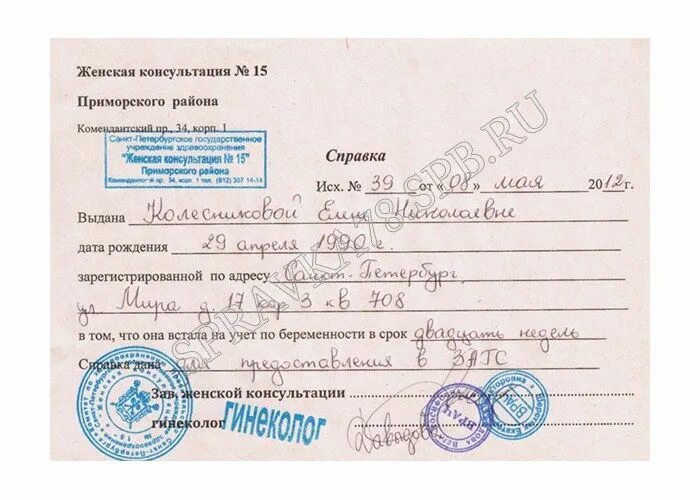 Женская консультация № 15
Приморского района
Комендантский пр., 34, корп. 1
Санкт-Петербургское государственное
учреждение здравоохранения
"Женская консультация № 15"
Приморского района
Комендантский пр. 34, корп. 1 тел. (812) 307 14-14
Справка
Исх. № 39 от «08» мая 2012г.
Выдана Колесниковой Елене Николаевне
дата рождения 29 апреля 1990 г.
зарегистрированной по адресу Санкт-Петербург,
ул. Мира д. 17 кор 3 кв 708
в том, что она встала на учет по беременности в срок двадцать недель
Справка дана для предоставления в ЗАГС
Зав. женской консультации
гинеколог
гинеколог
Давыдова
ВРАЧ
ВРАЧ
SPRAVKA78SPB.RU